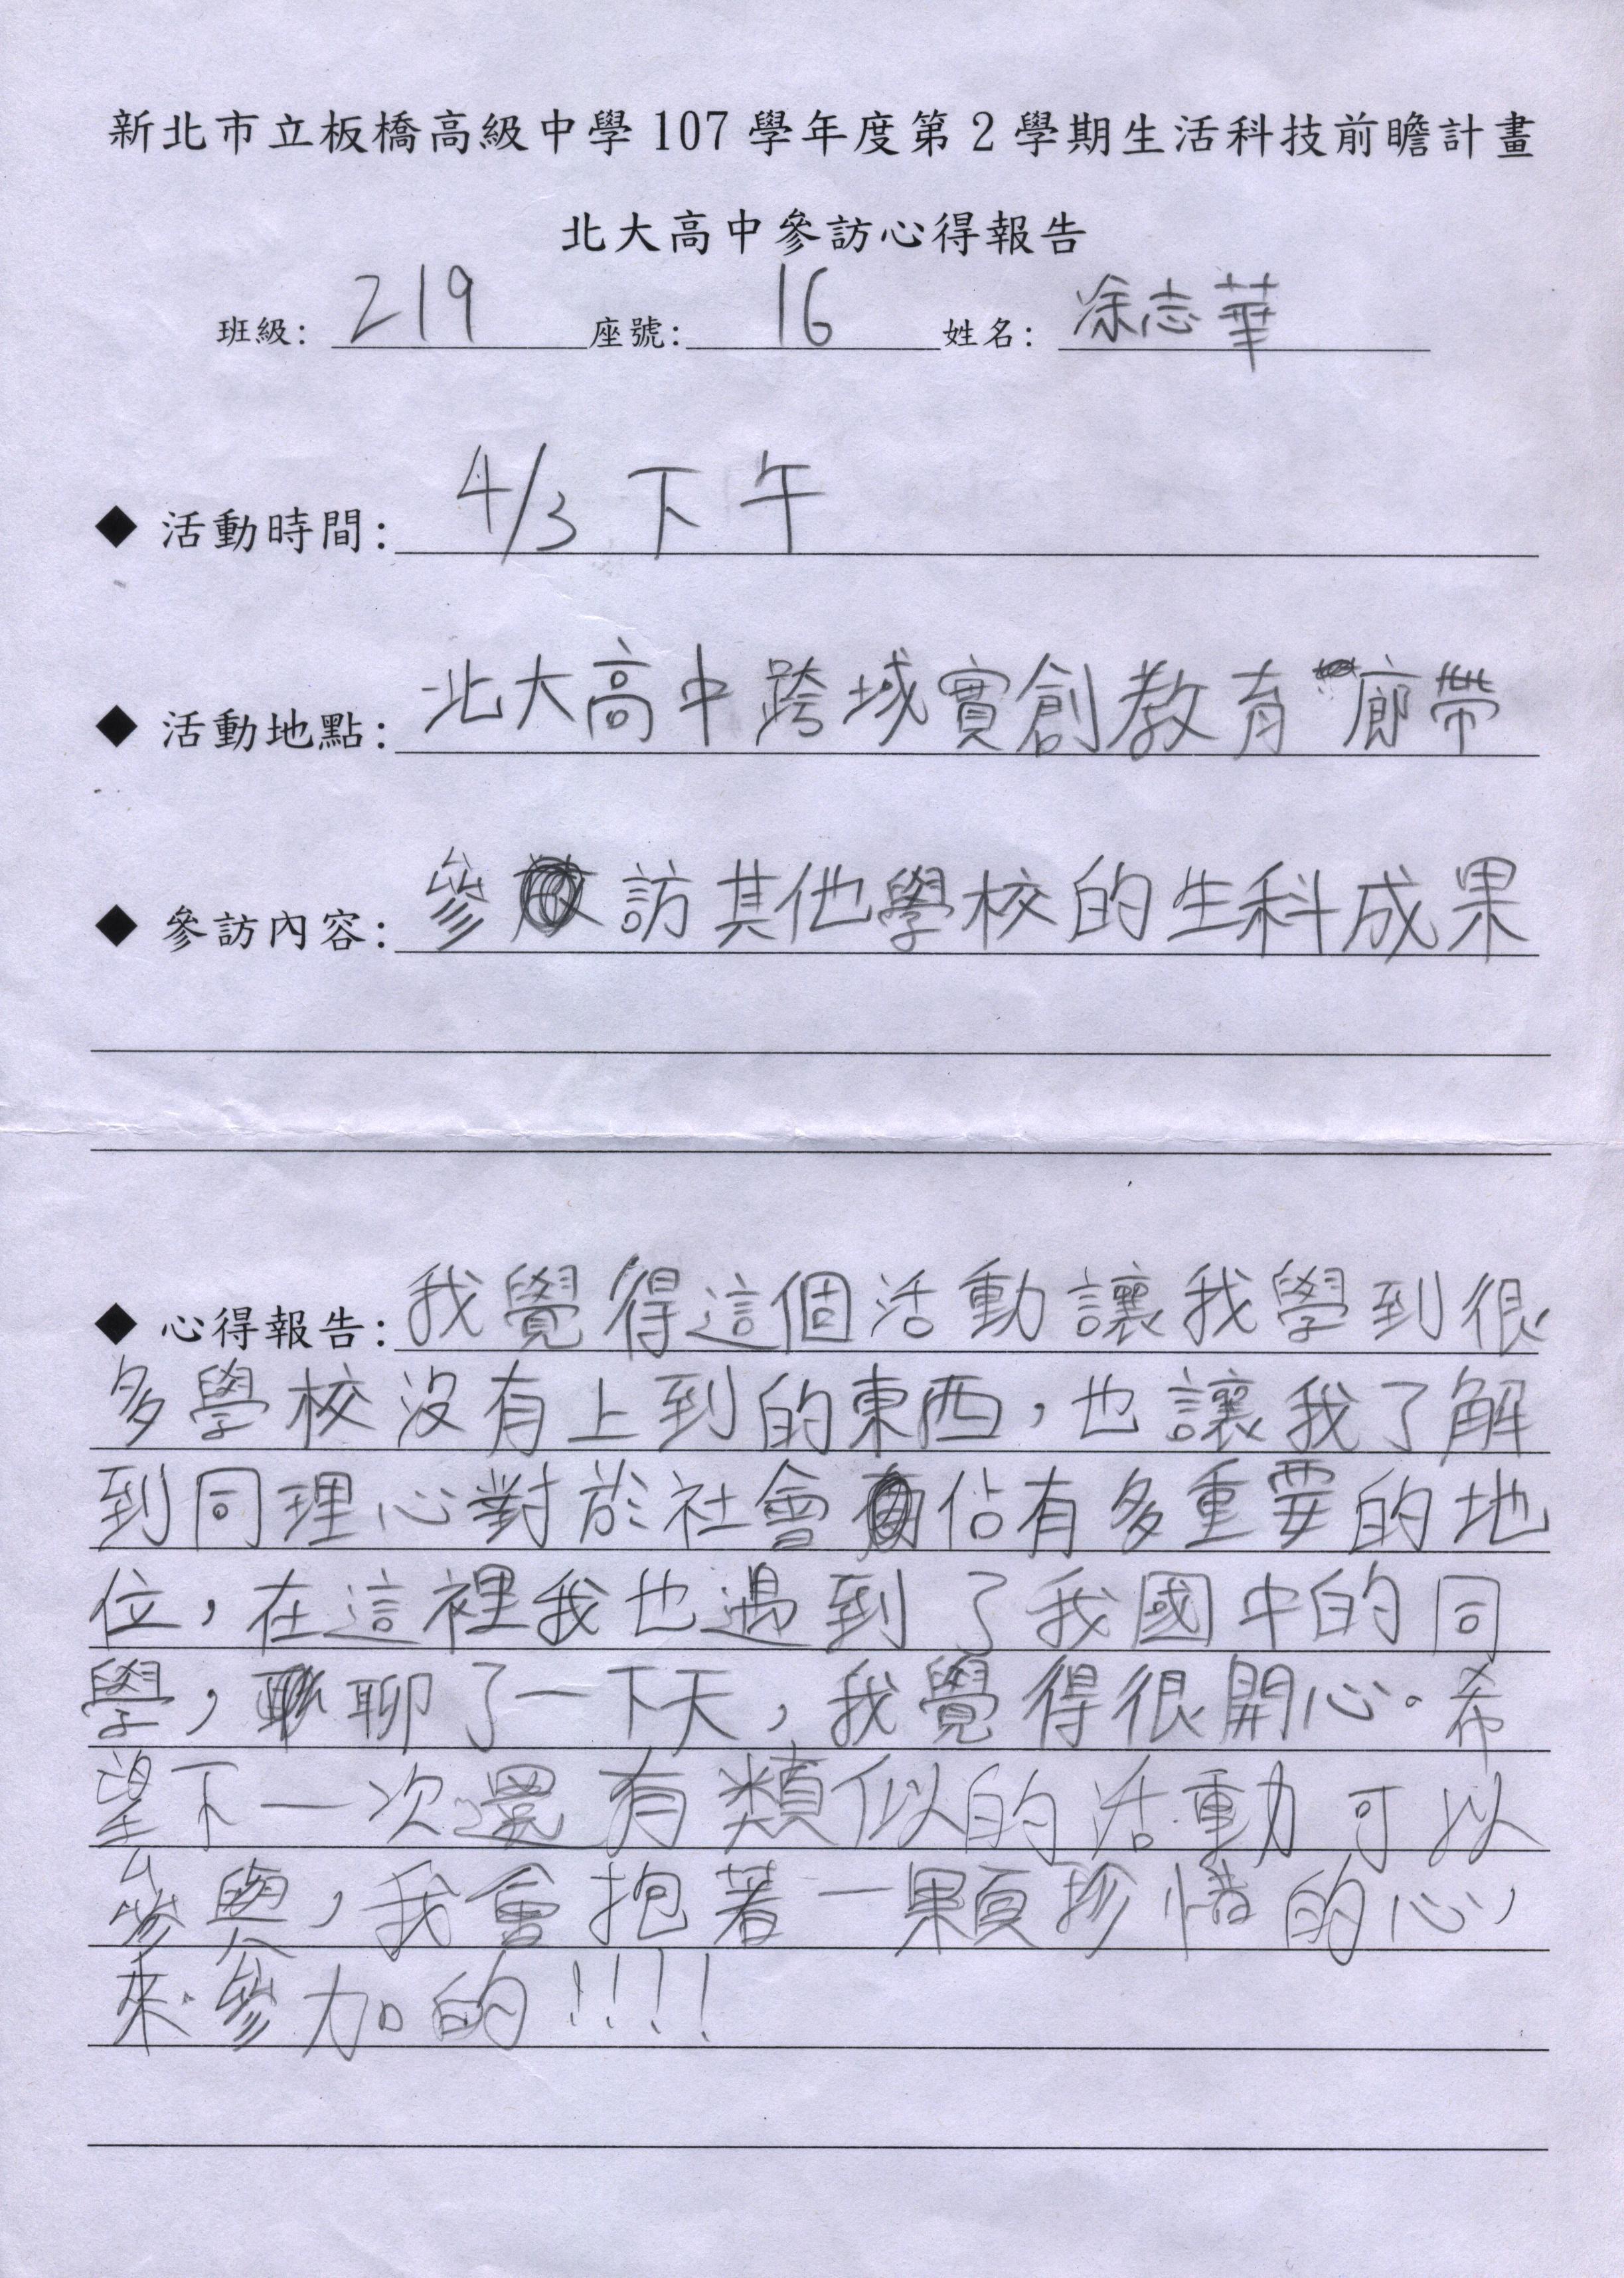 新北市立板橋高級中學107學年度第2學期生活科技前瞻計畫
北大高中參訪心得報告
班級: 219 座號: 16 姓名: 涂志華
◆ 活動時間: 4/3 下午
◆ 活動地點: 北大高中跨域實創教育廊帶
◆ 參訪內容: 參訪其他學校的生科成果
◆ 心得報告: 我覺得這個活動讓我學到很
多學校沒有上到的東西,也讓我了解
到同理心對於社會佔有多重要的地
位,在這裡我也遇到了我國中的同
學,聊了一下天,我覺得很開心。希
望下一次還有類似的活動可以
參與,我會抱著一顆珍惜的心
來參加的!!!!